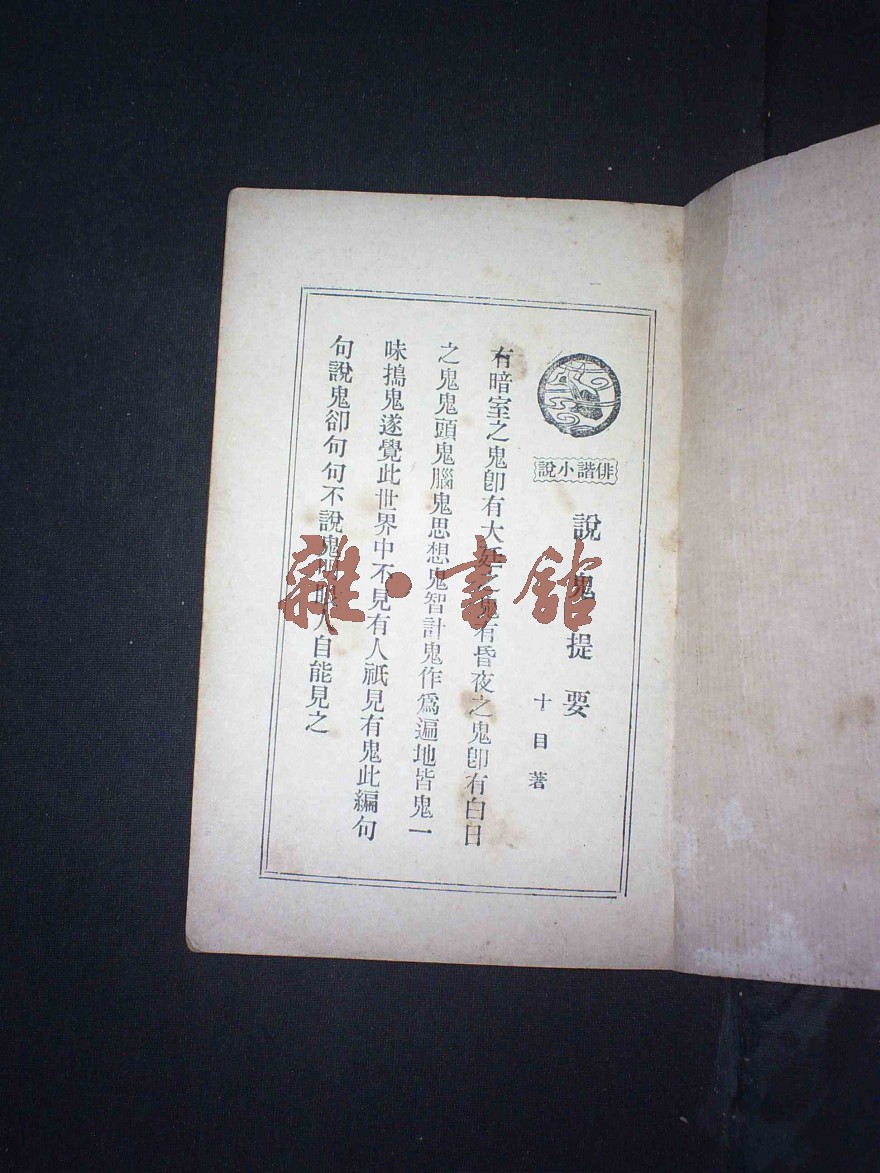 俳諧小說
說鬼提要
十目著
有暗室之鬼卽有大廷之鬼有昏夜之鬼卽有白日
之鬼鬼頭鬼腦鬼思想鬼智計鬼作爲遍地皆鬼一
味搗鬼遂覺此世界中不見有人祇見有鬼此編句
句說鬼卻句句不說鬼眼人自能見之
雜·書館